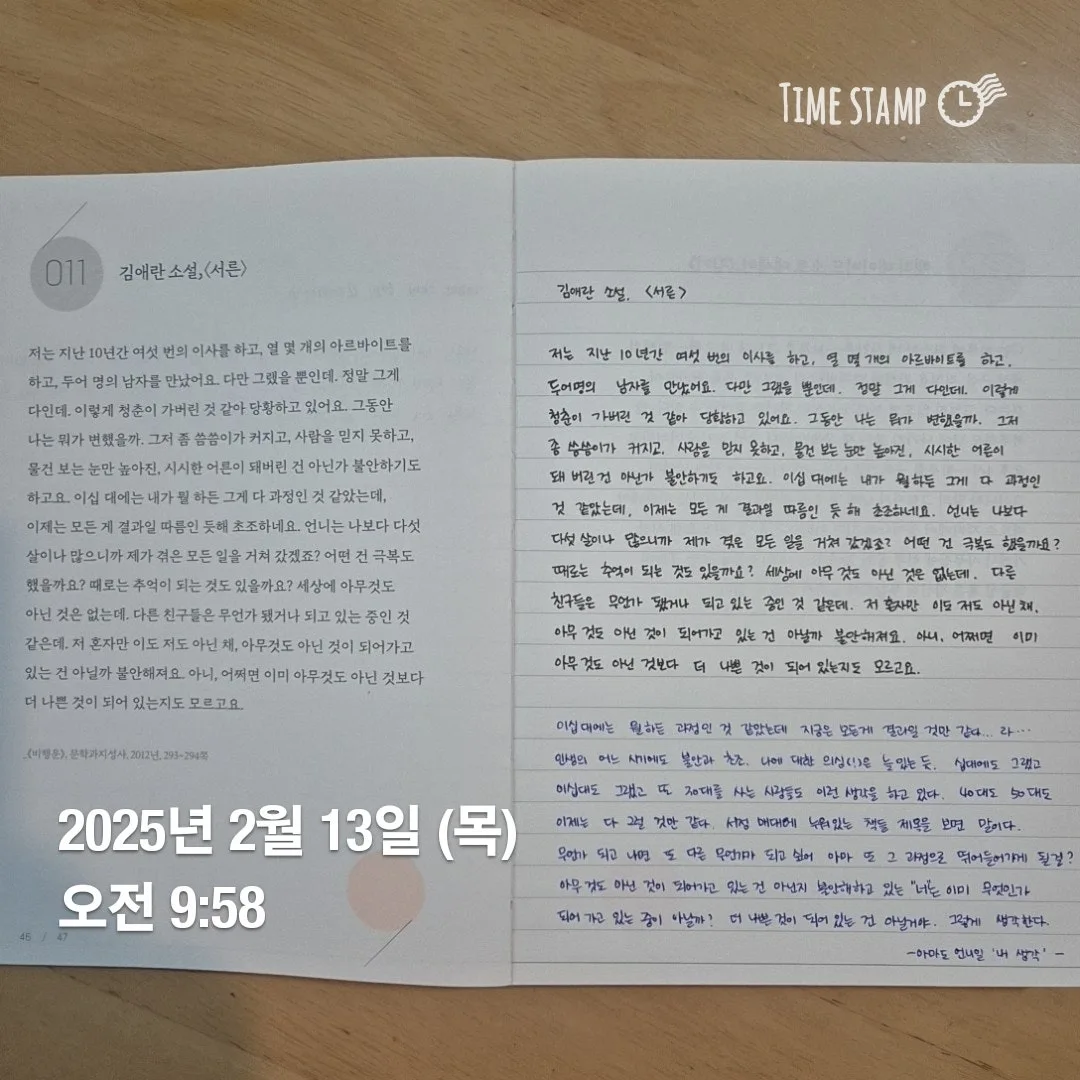 TIME STAMP
011
김애란 소설,〈서른〉
저는 지난 10년간 여섯 번의 이사를 하고, 열 몇 개의 아르바이트를
하고, 두어 명의 남자를 만났어요. 다만 그랬을 뿐인데. 정말 그게
다인데. 이렇게 청춘이 가버린 것 같아 당황하고 있어요. 그동안
나는 뭐가 변했을까. 그저 좀 씀씀이가 커지고, 사람을 믿지 못하고,
물건 보는 눈만 높아진, 시시한 어른이 돼버린 건 아닌가 불안하기도
하고요. 이십 대에는 내가 뭘 하든 그게 다 과정인 것 같았는데,
이제는 모든 게 결과일 따름인 듯해 초조하네요. 언니는 나보다 다섯
살이나 많으니까 제가 겪은 모든 일을 거쳐 갔겠죠? 어떤 건 극복도
했을까요? 때로는 추억이 되는 것도 있을까요? 세상에 아무것도
아닌 것은 없는데. 다른 친구들은 무언가 됐거나 되고 있는 중인 것
같은데. 저 혼자만 이도 저도 아닌 채, 아무것도 아닌 것이 되어가고
있는 건 아닐까 불안해져요. 아니, 어쩌면 이미 아무것도 아닌 것보다
더 나쁜 것이 되어 있는지도 모르고요.
《비행운》, 문학과지성사, 2012년, 293~294쪽
2025년 2월 13일 (목)
오전 9:58
46 / 47
김애란 소설, 〈서른〉
저는 지난 10년간 여섯 번의 이사를 하고, 열 몇 개의 아르바이트를 하고,
두어명의 남자를 만났어요. 다만 그랬을 뿐인데. 정말 그게 다인데. 이렇게
청춘이 가버린 것 같아 당황하고 있어요. 그동안 나는 뭐가 변했을까. 그저
좀 씀씀이가 커지고, 사람을 믿지 못하고, 물건 보는 눈만 높아진, 시시한 어른이
돼 버린 건 아닌가 불안하기도 하고요. 이십 대에는 내가 뭘 하든 그게 다 과정인
것 같았는데, 이제는 모든 게 결과일 따름인 듯 해 초조하네요. 언니는 나보다
다섯 살이나 많으니까 제가 겪은 모든 일을 거쳐 갔겠죠? 어떤 건 극복도 했을까요?
때로는 추억이 되는 것도 있을까요? 세상에 아무 것도 아닌 것은 없는데. 다른
친구들은 무언가 됐거나 되고 있는 중인 것 같은데. 저 혼자만 이도 저도 아닌 채,
아무 것도 아닌 것이 되어가고 있는 건 아닐까 불안해져요. 아니, 어쩌면 이미
아무 것도 아닌 것보다 더 나쁜 것이 되어 있는지도 모르고요.
이십 대에는 뭘 하든 과정인 것 같았는데 지금은 모든게 결과일 것만 같다... 라…
인생의 어느 시기에도 불안과 초조, 나에 대한 의심(!)은 늘 있는 듯. 십대에도 그랬고
이십대도 그랬고 또 30대를 사는 사람들도 이런 생각을 하고 있다. 40대도 50대도
이제는 다 그럴 것만 같다. 서점 매대에 누워있는 책들 제목을 보면 말이다.
무언가 되고 나면 또 다른 무언가가 되고 싶어 아마 또 그 과정으로 뛰어들어가게 될걸?
아무 것도 아닌 것이 되어가고 있는 건 아닌지 불안해하고 있는 "너"는 이미 무엇인가
되어 가고 있는 중이 아닐까? 더 나쁜 것이 되어 있는 건 아닐거야. 그렇게 생각한다.
-아마도 언니일 '내 생각' -